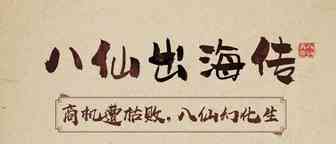 八仙出海传
商机遭枯败，八仙幻化生